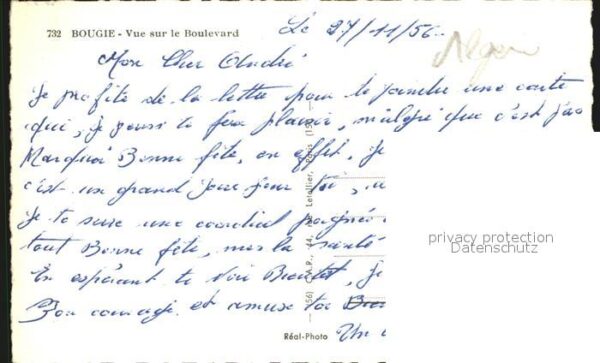 732 BOUGIE - Vue sur le Boulevard
Le 27/11/56
Algérie
Mon Cher André
je profite de la lettre pour te joindre une carte
qui, je pense te fera plaisir, malgré que c'est pas
Marqué Bonne fête, en effet, je
c'est un grand jour pour toi,
je te serre une cordial poignée
tout Bonne fête, mes la santé
En espérant te voir Bientot, je
Bon courage et amuse toi
Un
Réal-Photo
(56) C.A.P., 44, Letellier, Paris
privacy protection
Datenschutz